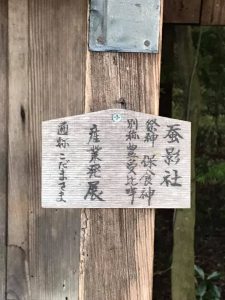 蚕影社
祭神 保食神
別称 豊受比咩
産業発展
通称 こだまさま